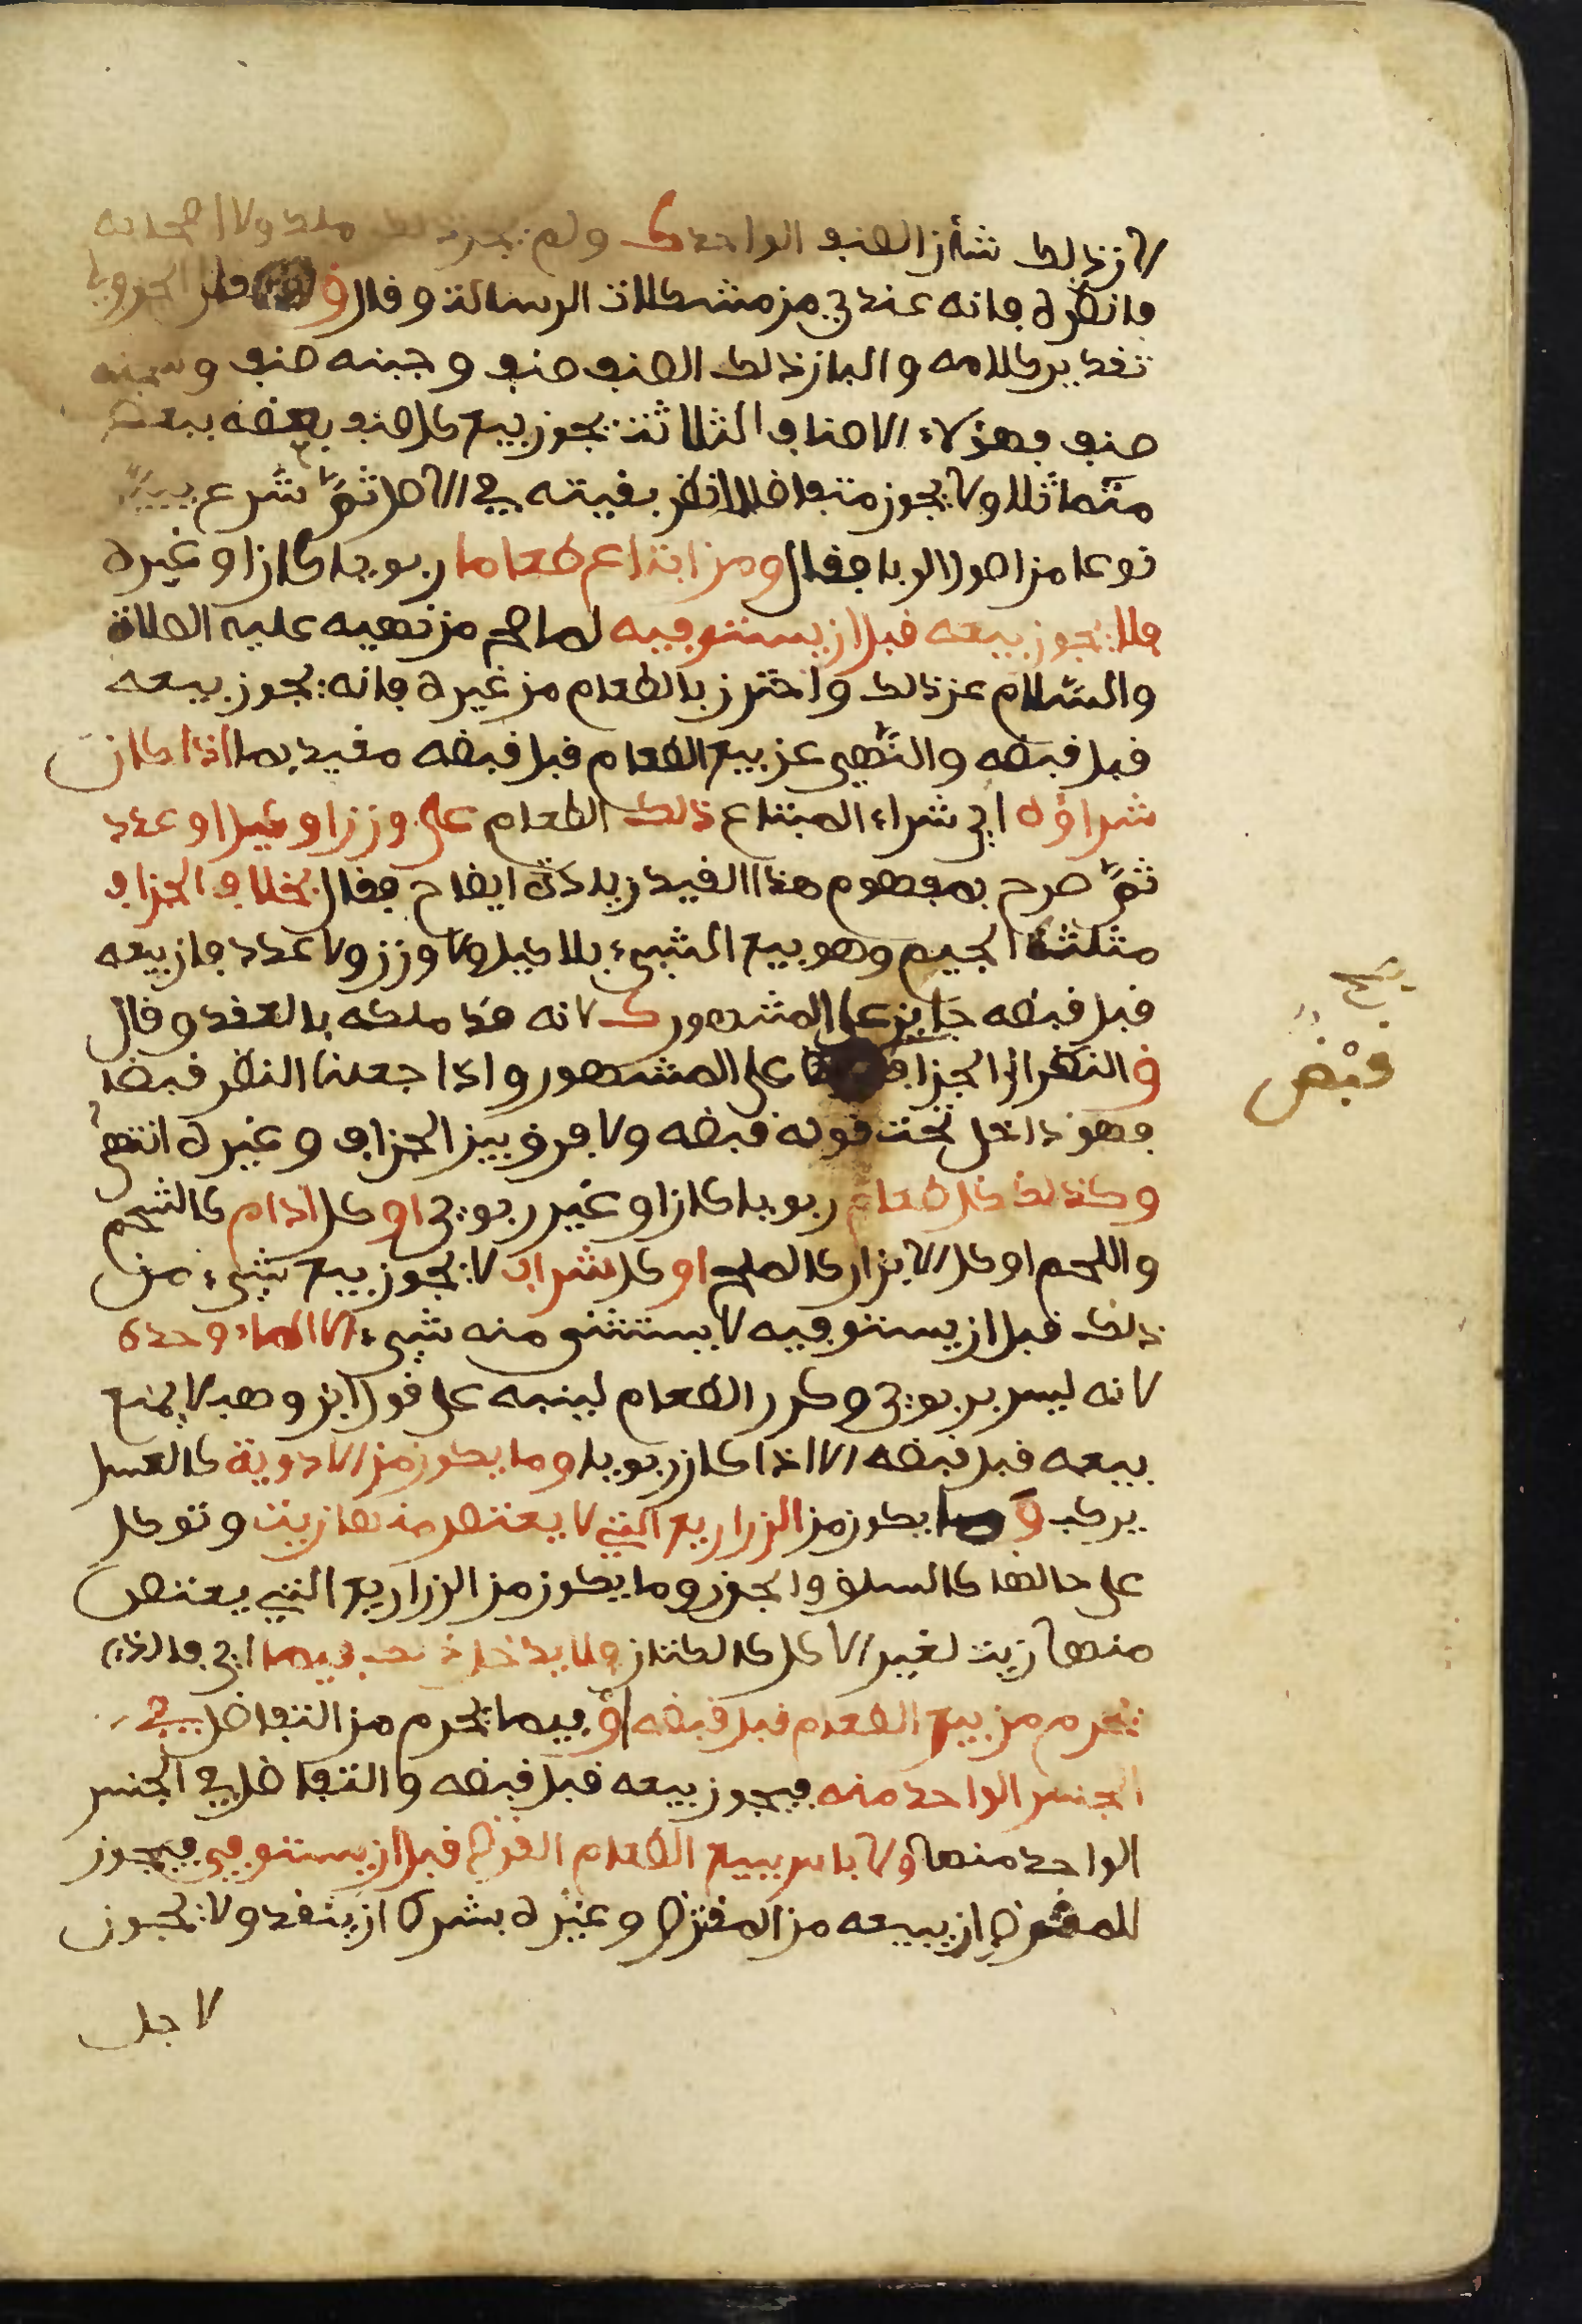 لان ذلك شأن الصنف الواحد ك ولم يجز ذلك ملك ولا اصحابه
فانظره فانه عندي من مشكلات الرسالة وقال ق
تقدير كلامه والبان ذلك الصنف صنف وجبنه صنف وسمنه
صنف فهؤلاء الاصناف الثلاثة يجوز بيع كل صنف بعضه ببعض
متماثلا ولا يجوز متفاضلا انظر بقيته في الاصل ثم شرع يبين
نوعا من اصول الربا فقال ومن ابتاع طعاما ربويا كان او غيره
فلا يجوز بيعه قبل ان يستوفيه لما صح من نهيه عليه الصلاة
والسلام عن ذلك واحترز بالطعام من غيره فانه يجوز بيعه
قبل قبضه والنهي عن بيع الطعام قبل قبضه مقيد بما اذا كان
شراؤه اي شراء المبتاع ذلك الطعام على وزن او كيل او عدد
ثم صرح بمفهوم هذا القيد زيادة ايضاح فقال بخلاف الجزاف
مثلثة الجيم وهو بيع الشيء بلا كيل ولا وزن ولا عدد فان بيعه
قبل قبضه جايز على المشهور ك لانه قد ملكه بالعقد وقال
ق النظر الى الجزاف على المشهور واذا جعلنا النظر قبضا
فهو داخل تحت قوله قبضه ولا فرق بين الجزاف وغيره انتهى
وكذلك كل طعام ربويا كان او غير ربوي او كل ادام كالشحم
واللحم او كل الابزار كالملح او كل شراب لا يجوز بيع شيء من
ذلك قبل ان يستوفيه لا يستثنى منه شيء الا الماء وحده
لانه ليس بربوي وكرر الطعام لينبه على قول ابن وهب لا يمنع
بيعه قبل قبضه الا اذا كان ربويا وما يكون من الادوية كالعسل
يركب و ما يكون من الزراريع التي لا يعتصر منها زيت وتوكل
على حالها كالسلق والجزر وما يكون من الزراريع التي يعتصر
منها زيت لغير الاكل كالكتان فلا يدخل ذلك فيما اي في الذي
يحرم من بيع الطعام قبل قبضه او فيما يحرم من التفاضل في
الجنس الواحد منه فيجوز بيعه قبل قبضه والتفاضل في الجنس
الواحد منها ولا باس ببيع الطعام القرض قبل ان يستوفى فيجوز
للمقرض ان يبيعه من المقترض وغيره بشرط ان ينقد ولا يجوز
لاجل
بيع
قبض